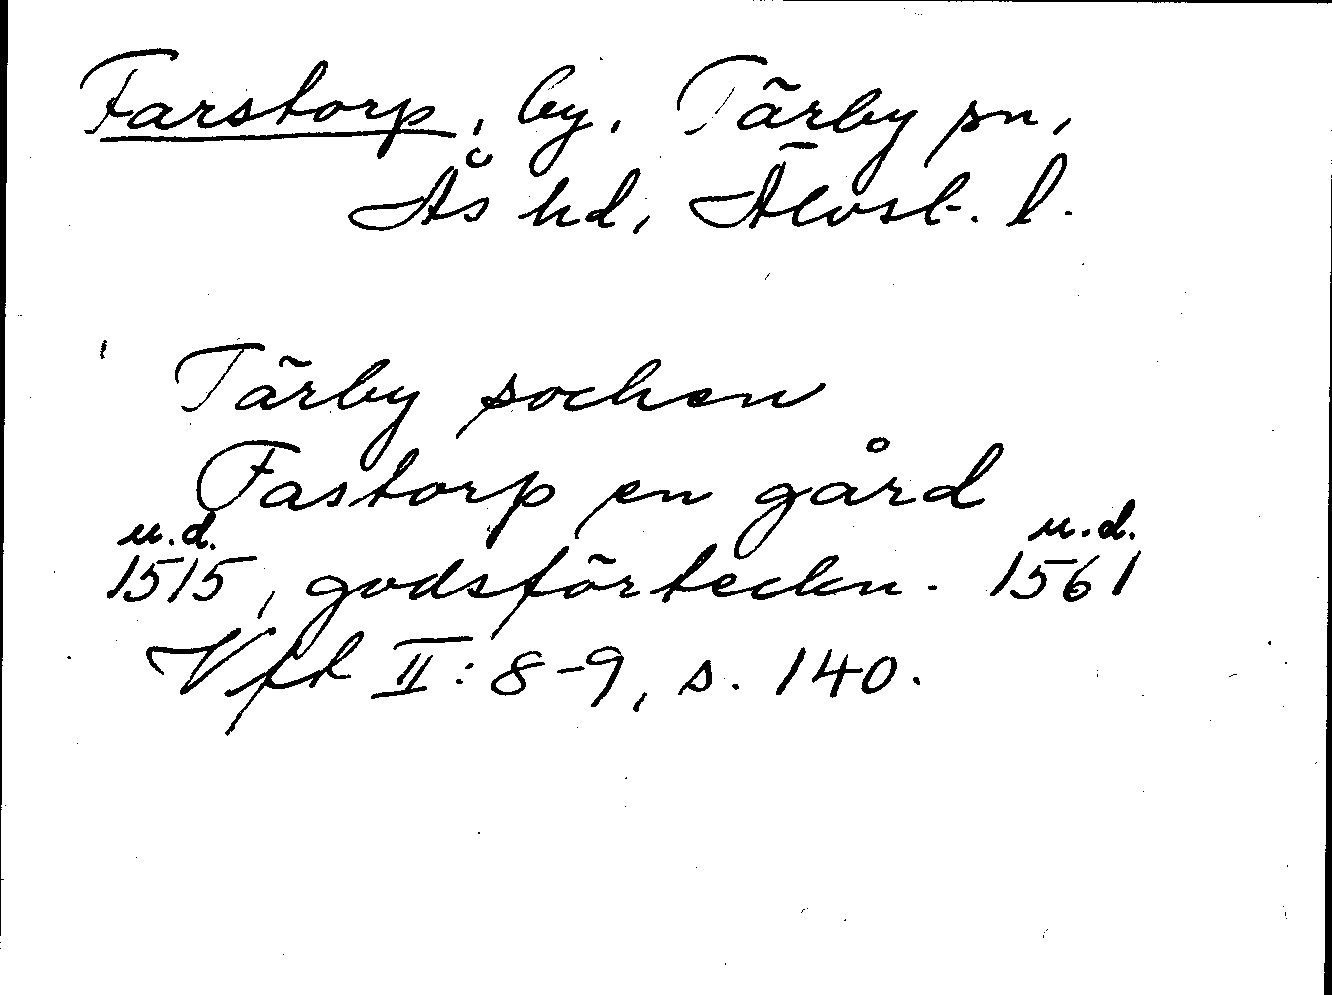 Farstorp, by, Tärby sn,
Ås hd, Älvsb. l.
Tärby sochen
Fastorp en gård
u.d. u.d.
1515, godsförteckn. 1561
Vft II: 8-9, s. 140.